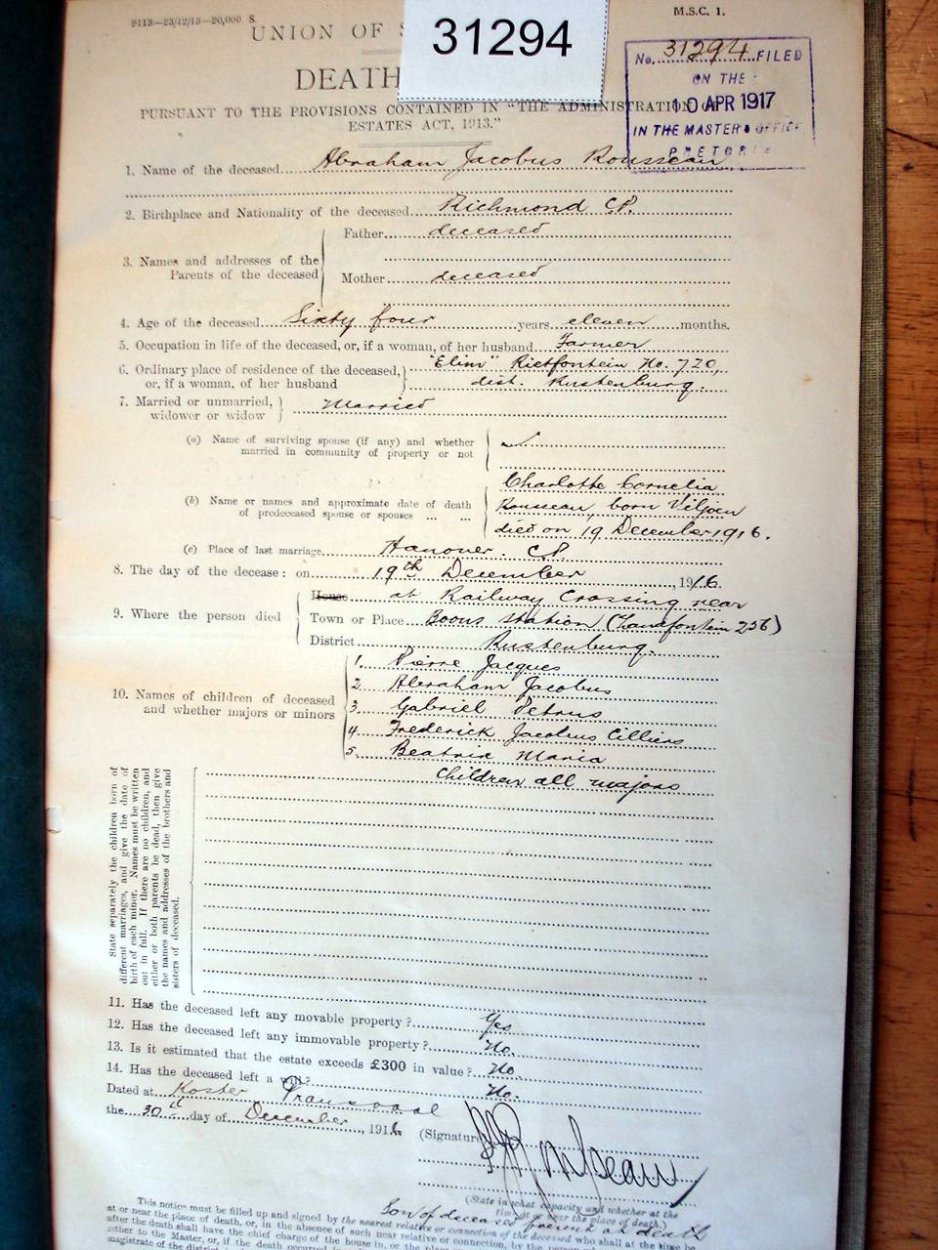 9113—23/12/13—20,000 S.
M.S.C. 1.
UNION OF S
31294
No. 31294 FILED
ON THE
10 APR 1917
IN THE MASTER'S OFFICE
PRETORIA
DEATH
PURSUANT TO THE PROVISIONS CONTAINED IN "THE ADMINISTRATION OF
ESTATES ACT, 1913."
1. Name of the deceased Abraham Jacobus Rousseau
2. Birthplace and Nationality of the deceased Richmond C.P.
3. Names and addresses of the Parents of the deceased
Father deceased
Mother deceased
4. Age of the deceased Sixty four years eleven months.
5. Occupation in life of the deceased, or, if a woman, of her husband Farmer
6. Ordinary place of residence of the deceased, "Elim" Rietfontein No. 720,
or, if a woman, of her husband dist. Rustenburg.
7. Married or unmarried, widower or widow Married
(a) Name of surviving spouse (if any) and whether
married in community of property or not
(b) Name or names and approximate date of death
of predeceased spouse or spouses ... ...
Charlotte Cornelia
Rousseau, born Viljoen
died on 19 December 1916.
(c) Place of last marriage Hanover. C.P.
8. The day of the decease: on 19th December, 1916.
9. Where the person died
House at Railway Crossing near
Town or Place Boons Station (Zandfontein 256)
District Rustenburg.
10. Names of children of deceased
and whether majors or minors
1. Pierre Jacques
2. Abraham Jacobus
3. Gabriel Petrus
4. Frederick Jacobus Cilliers
5. Beatrix Maria
Children all majors
State separately the children born of
different marriages, and give the date of
birth of each minor. Names must be written
out in full. If there are no children, and
either or both parents be dead, then give
the names and addresses of the brothers and
sisters of deceased.
11. Has the deceased left any movable property? Yes
12. Has the deceased left any immovable property? No.
13. Is it estimated that the estate exceeds £300 in value? No.
14. Has the deceased left a will? No.
Dated at Koster Transvaal
the 30th day of December, 1916
(Signature) Rousseau
(State in what capacity and whether at the
time at or near the place of death.)
Son of deceased present at death
This notice must be filled up and signed by the nearest relative or connection of the deceased who shall at the time be
at or near the place of death, or, in the absence of such near relative or connection, by the person who
after the death shall have the chief charge of the house in, or the place
either to the Master, or, if the death occurred
magistrate of the district